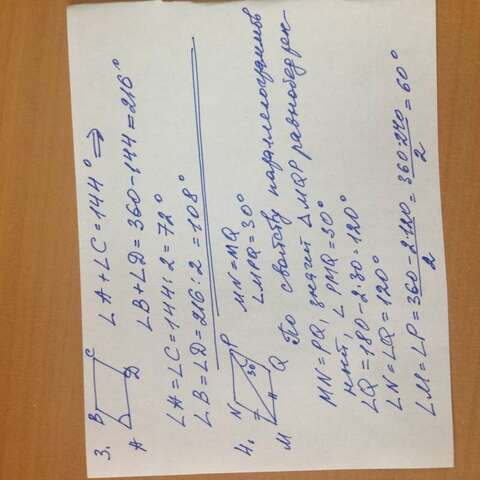 3.
B C
A D
∠A + ∠C = 144° ⇒
∠B + ∠D = 360 - 144 = 216°
∠A = ∠C = 144 : 2 = 72°
∠B = ∠D = 216 : 2 = 108°
4.
N P
30°
M Q
MN = MQ
∠MPQ = 30°
По свойству параллелограммов
MN = PQ, значит Δ MQP равнобедрен-
ный, ∠ PMQ = 30°
∠Q = 180 - 2·30 = 120°
∠N = ∠Q = 120°
∠M = ∠P = 360 - 2·120 / 2 = 360-240 / 2 = 60°